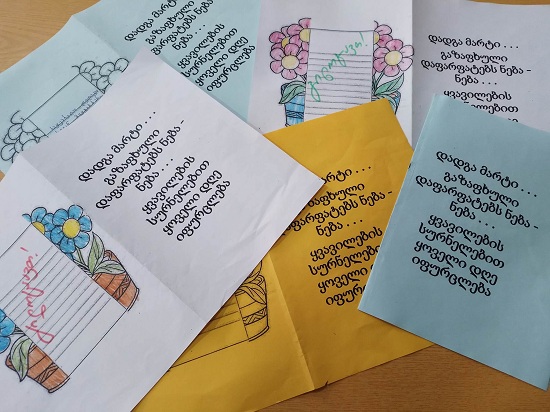 დადგა მარტი . . .
გაზაფხული
დაფარფატებს ნება -
ნება . . .
ყვავილების
სურნელებით
ყოველი დღე
იფურცლება
გილოცავთ!
დადგა მარტი . . .
გაზაფხული
დაფარფატებს ნება -
ნება . . .
ყვავილების
სურნელებით
დადგა მარტი . . .
გაზაფხული
დაფარფატებს ნება -
ნება . . .
ყვავილების
სურნელებით
ყოველი დღე
იფურცლება
გილოცავთ!
მარტი . . .
ნება -
ნება . . .
ყვავილების
სურნელებით
ყოველი დღე
იფურცლება
დადგა მარტი . . .
გაზაფხული
დაფარფატებს ნება -
ნება . . .
ყვავილების
სურნელებით
ყოველი დღე
იფურცლება